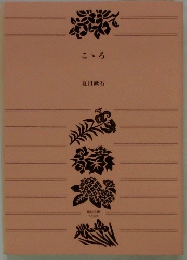 こゝろ
夏目漱石